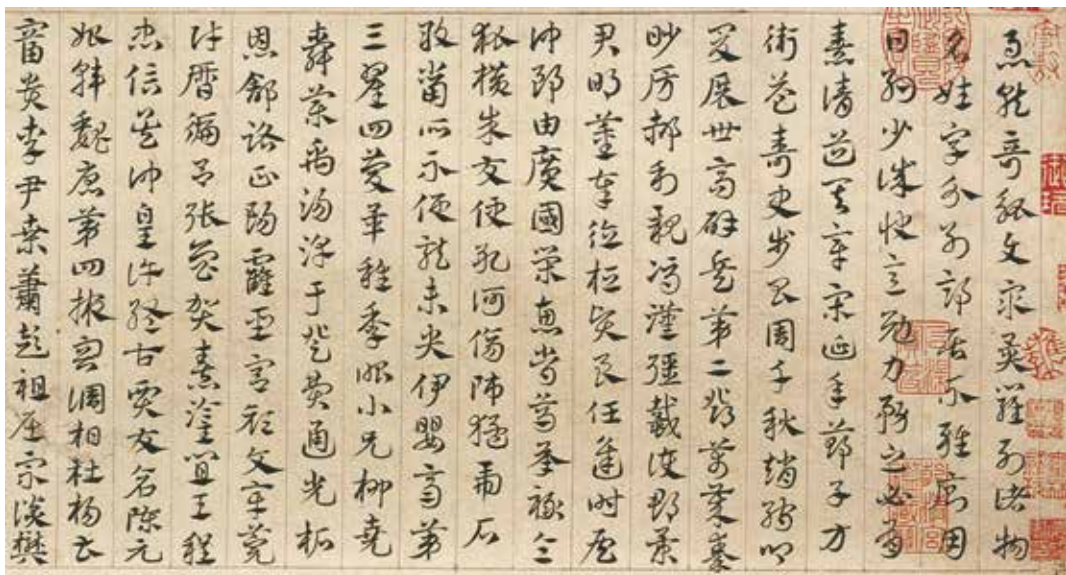 急就奇觚與衆異羅列諸物
名姓字分別部居不雜廁用
日約少誠快意勉力務之必有
憙請道其章宋延年鄭子方
衛益壽史步昌周千秋趙孺卿
爰展世高辟兵第二鄧萬歲秦
眇房郝利親馮漢彊戴護郡景
君明董奉德桓賢良任逢時侯
仲郎由廣國榮惠常烏承祿令
狐橫朱交便孔何傷師猛虎石
敢當所不侵龍未央伊嬰齊第
三翟回慶畢稚季昭小兄柳堯
舜藥禹湯淳于登費通光柘
恩舒路正陽霍聖宮顏文章莞
財歷編呂張魯賀憙灌宜王程
忠信吳仲皇許終古賈友倉陳元
始韓魏唐第四掖容調柏杜楊曹
富貴李尹桑蕭彭祖屈宗談樊